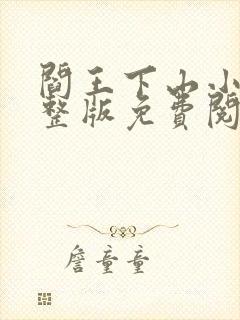 閻王下山小
整版免費閱
詹童童